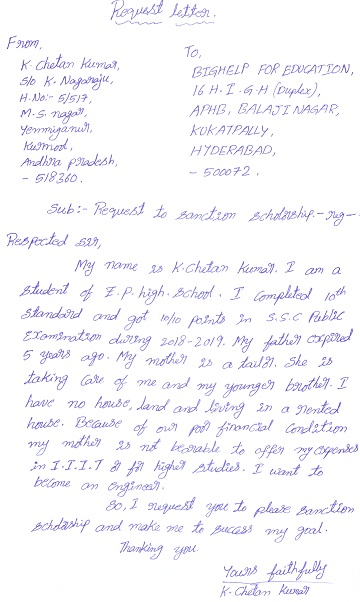 Request letter.
From,
K. Chetan Kumar,
S/o K. Nagaraju,
H.No:- 5/517,
M.S. nagar,
Yemmiganur,
Kurnool,
Andhra pradesh,
- 518360.
To,
BIGHELP FOR EDUCATION,
16 H.I.G.H (Duplex),
APHB, BALAJI NAGAR,
KUKATPALLY,
HYDERABAD,
- 500072.
Sub:- Request to sanction scholarship.-reg-
Respected sir,
My name is K.Chetan Kumar. I am a
student of Z.P. high. School. I completed 10th
standard and got 10/10 points in S.S.C Public
Examination during 2018-2019. My father expired
5 years ago. My mother is a tailor. She is
taking care of me and my younger brother. I
have no house, land and living in a rented
house. Because of our poor financial condition
my mother is not bearable to offer my expenses
in I.I.I.T & for higher studies. I want to
become an engineer.
So, I request you to please sanction
scholarship and make me to success my goal.
Thanking you
Yours faithfully
K. Chetan Kumar